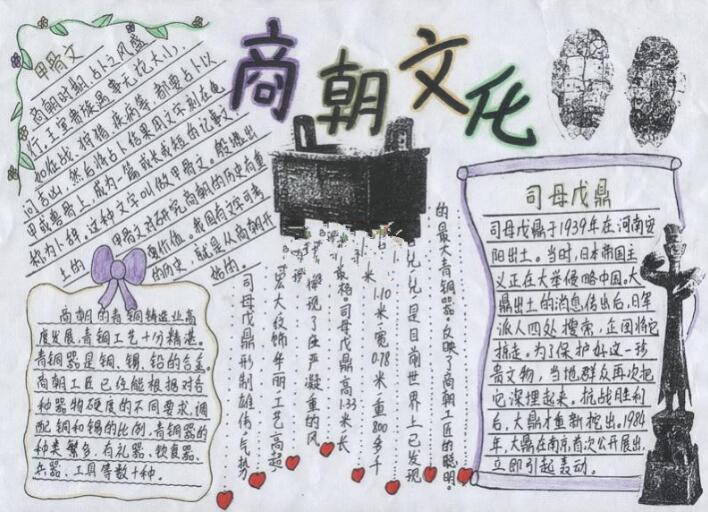 商朝文化
甲骨文
商朝时期,占卜风盛
行,王室贵族遇事无论大小,
如征战、狩猎、疾病等,都要占卜以
问吉凶,然后将占卜结果用文字刻在龟
甲或兽骨上,成为一篇或长或短的记事文,
称为卜辞。这种文字叫做甲骨文。出
土的甲骨文对研究商朝的历史有重
要价值。我国有文字可考
的历史,就是从商朝开
始的。
商朝的青铜铸造业高
度发展,青铜工艺十分精湛。
青铜器是铜、锡、铅的合金。
商朝工匠已经能根据对各
种器物硬度的不同要求,调
配铜和锡的比例,青铜器的
种类繁多,有礼器、饮食器、
兵器、工具等数十种。
司母戊鼎形制雄伟气势
宏大纹饰华丽工艺高超
现了庄严凝重的风
格。司母戊鼎高1.33米长
1.10米,宽0.78米,重800多斤
是目前世界上已发现
的最大青铜器,反映了商朝工匠的聪明。
司母戊鼎
司母戊鼎于1939年在河南安
阳出土。当时,日本帝国主
义正在大举侵略中国。大
鼎出土的消息传出后,日军
派人四处搜索,企图将它
掳走。为了保护好这一珍
贵文物,当地群众再次把
它深埋起来,抗战胜利
后,大鼎才重新挖出。1984
年,大鼎在南京首次公开展出,
立即引起轰动。